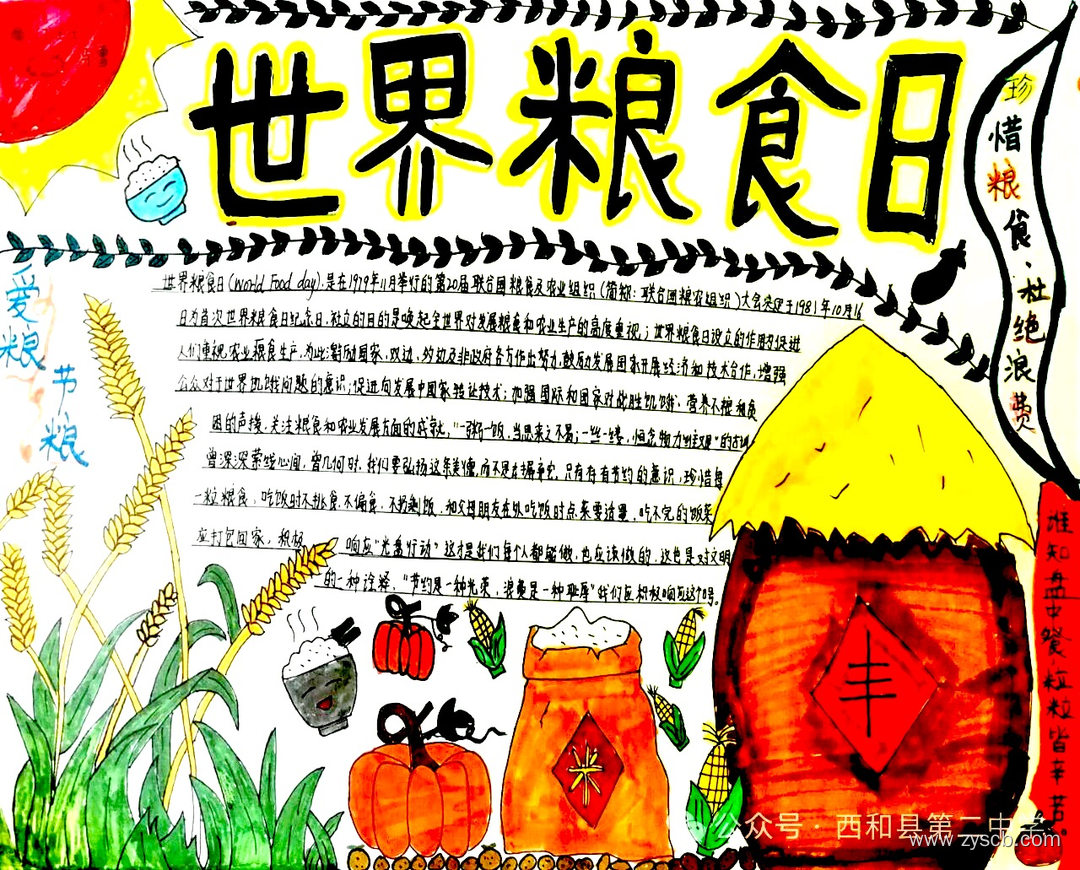 世界粮食日
珍惜粮食、杜绝浪费
爱粮
节粮
世界粮食日(World Food day),是在1979年11月举行的第20届联合国粮食及农业组织(简称:联合国粮农组织)大会决定于1981年10月16
日为首次世界粮食日纪念日.设立的目的是唤起全世界对发展粮食和农业生产的高度重视;世界粮食日设立的作用为促进
人们重视农业粮食生产,为此激励国家、双边、多边及非政府各方作出努力,鼓励发展国家开展经济和技术合作,增强
公众对于世界饥饿问题的意识;促进向发展中国家转让技术;加强国际和国家对战胜饥饿、营养不良和贫
困的声援,关注粮食和农业发展方面的成就,"一粥一饭,当思来之不易;一丝一缕,恒念物力维艰"的古训
曾深深萦绕心间,曾几何时,我们要弘扬这条美德,而不是大摆
只有存有节约的意识,珍惜每
一粒粮食,吃饭时不挑食、不偏食、不扔剩饭,和父母朋友在外吃饭时点菜要适量,吃不完的饭菜
应打包回家,积极 响应"光盘行动"这才是我们每个人都能做,也应该做的,这也是对文明
的一种诠释,"节约是一种光荣,浪费是一种耻辱"我们应积极响应这个口号。
谁知盘中餐,粒粒皆辛苦。
丰
米
公众号·西和县第二中学
www.zyscb.com